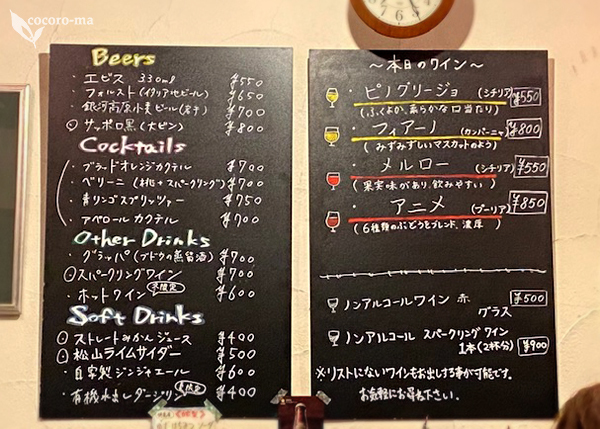 cocoro-ma
Beers
・エビス 330ml ¥550
・フォルスト(イタリア地ビール) ¥650
・銀河高原小麦ビール(岩手) ¥700
○サッポロ黒(大ビン) ¥800
Cocktails
・ブラッドオレンジカクテル ¥700
・ベリーニ (桃+スパークリング) ¥700
・青リンゴスプリッツァー ¥750
・アペロールカクテル ¥700
Other Drinks
・グラッパ(ブドウの蒸留酒) ¥700
○スパークリングワイン ¥700
・ホットワイン 冬限定 ¥600
Soft Drinks
○ストレートみかんジュース ¥400
○松山ライムサイダー ¥500
・自家製ジンジャエール ¥600
・有機水出しダージリン 夏限定 ¥400
～本日のワイン～
・ピノグリージョ (シチリア) ¥550
(ふくよか、柔らかな口当たり)
・フィアーノ (カンパーニャ) ¥800
(みずみずしいマスカットのよう)
・メルロー (シチリア) ¥550
(果実味があり、飲みやすい)
・アニメ (プーリア) ¥850
(6種類のぶどうをブレンド、濃厚)
ノンアルコールワイン 赤 ¥500
グラス
ノンアルコール スパークリングワイン
1本(2杯分) ¥900
※リストにないワインもお出しする事が可能です。
お気軽にお尋ね下さい。